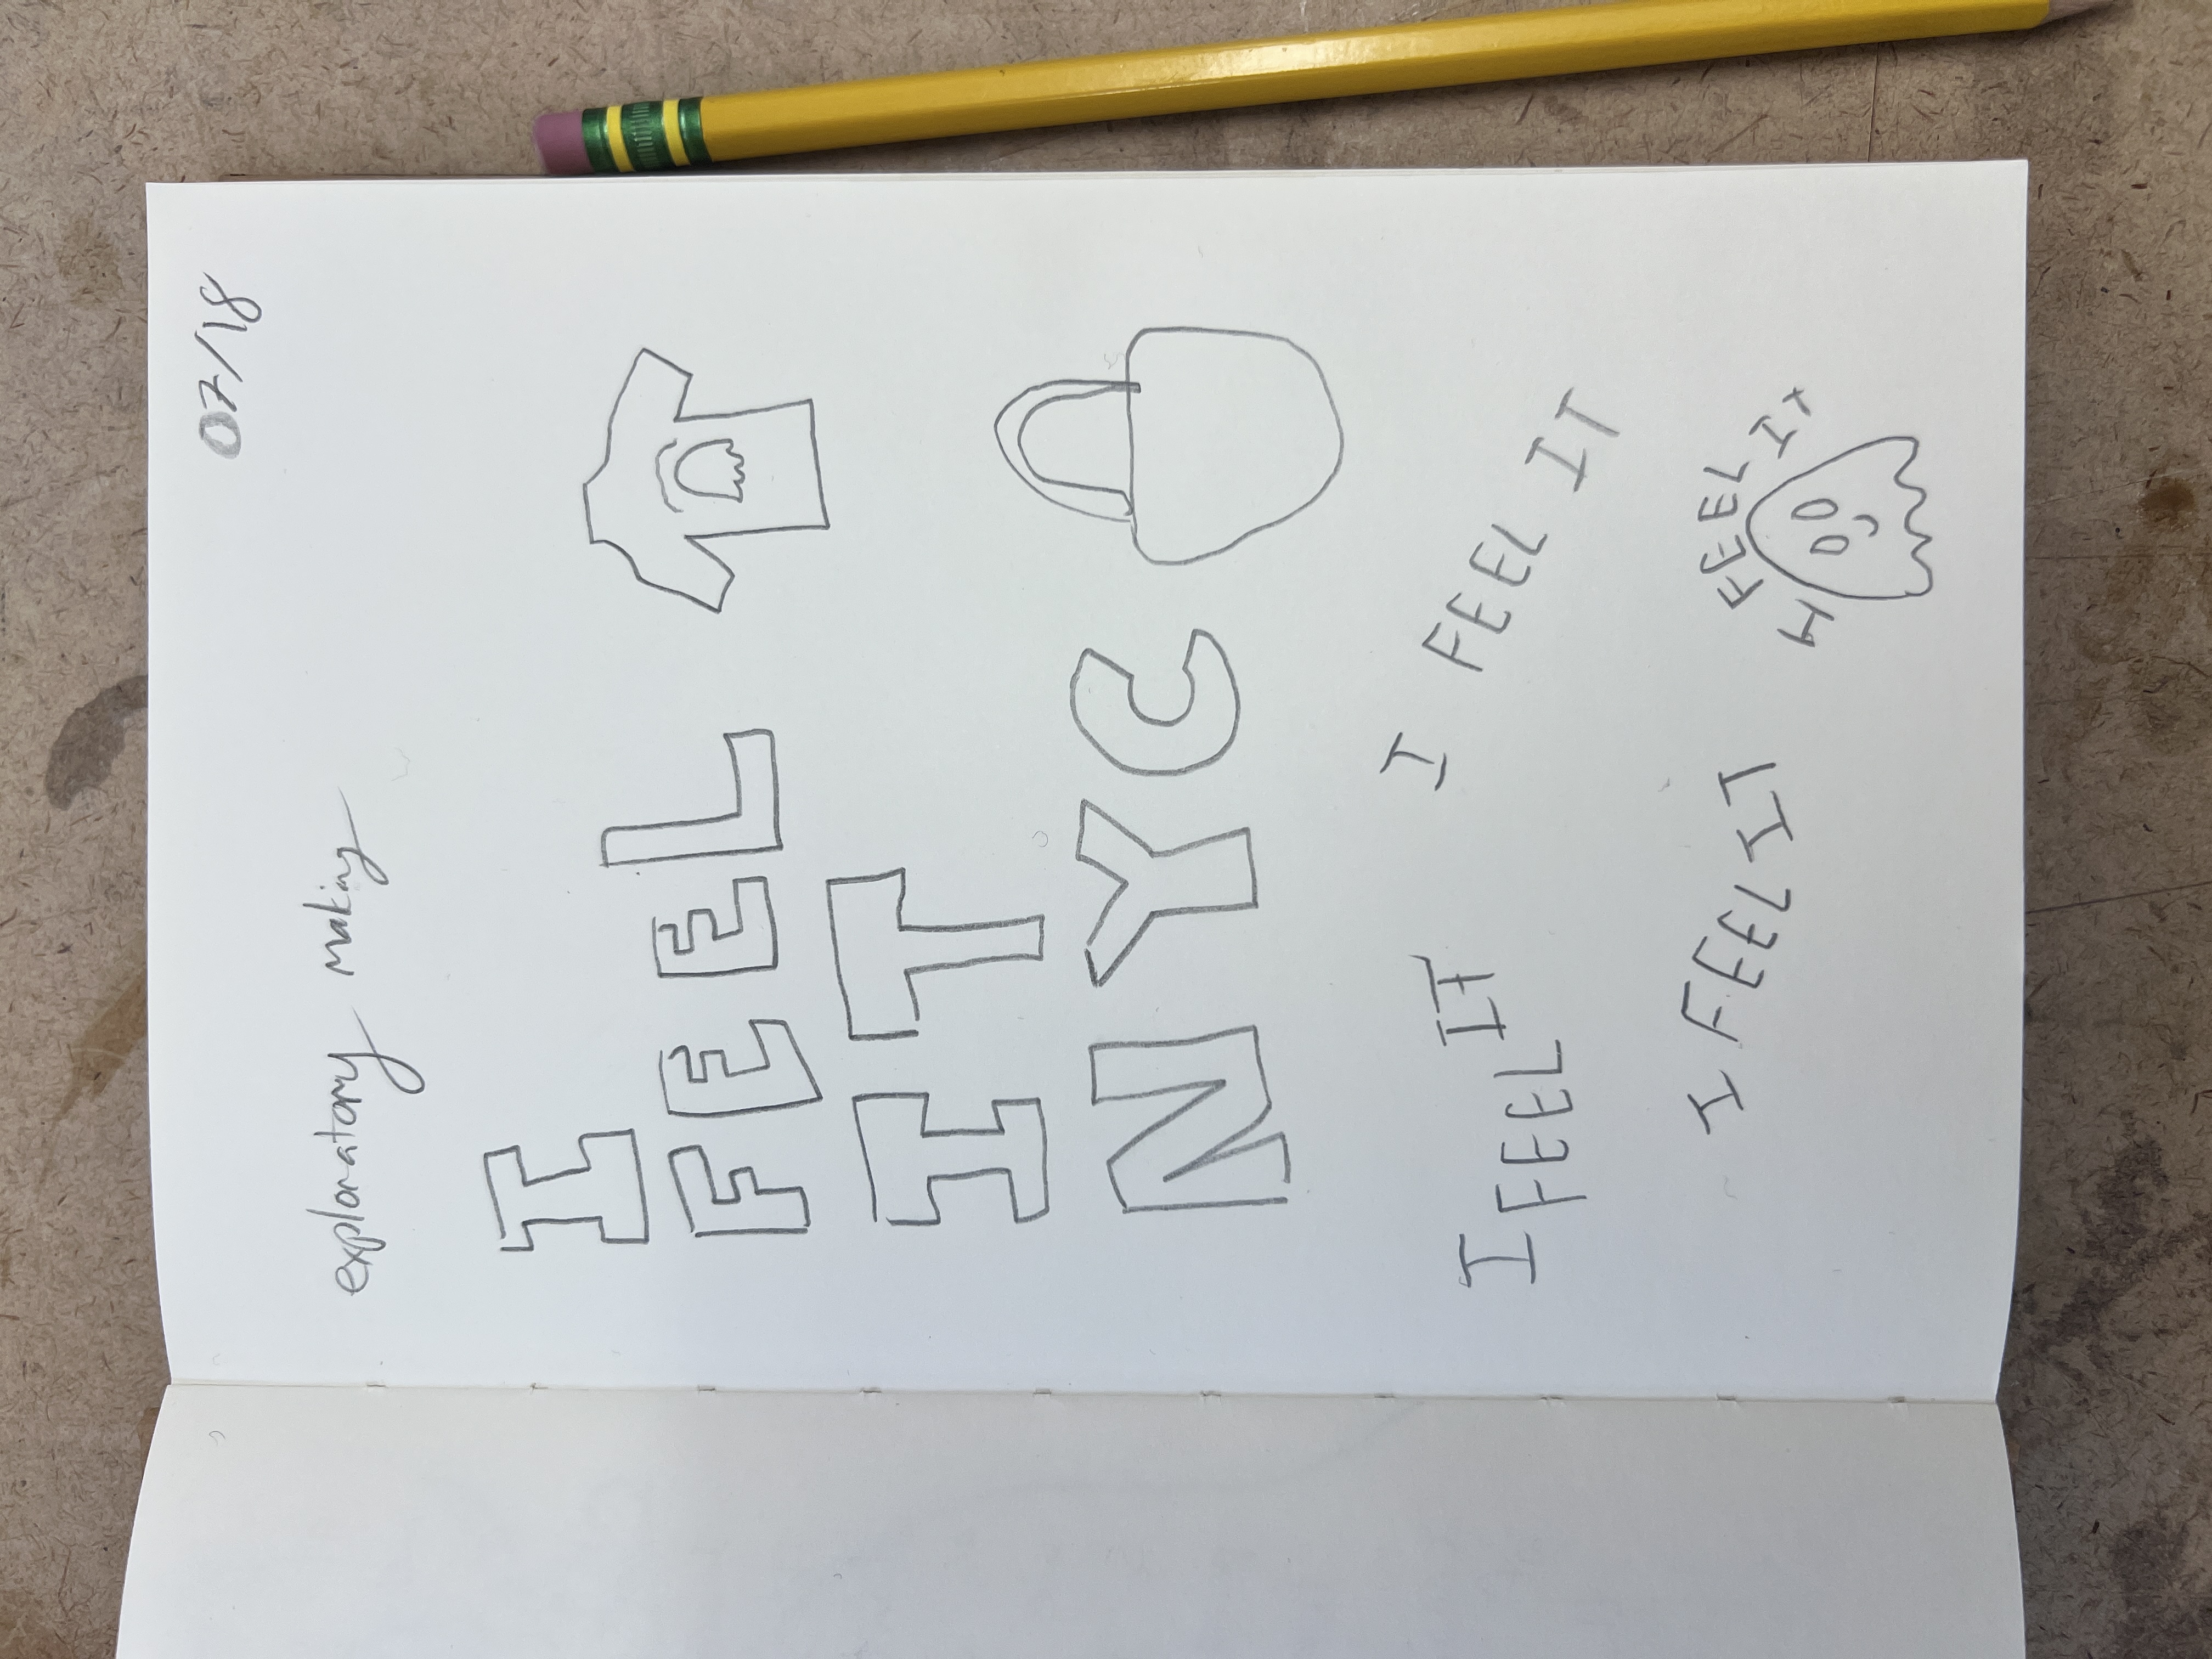 07/18
exploratory making
I
FEEL
IT
NYC
I FEEL IT
I FEEL IT
I FEEL IT
I FEEL IT